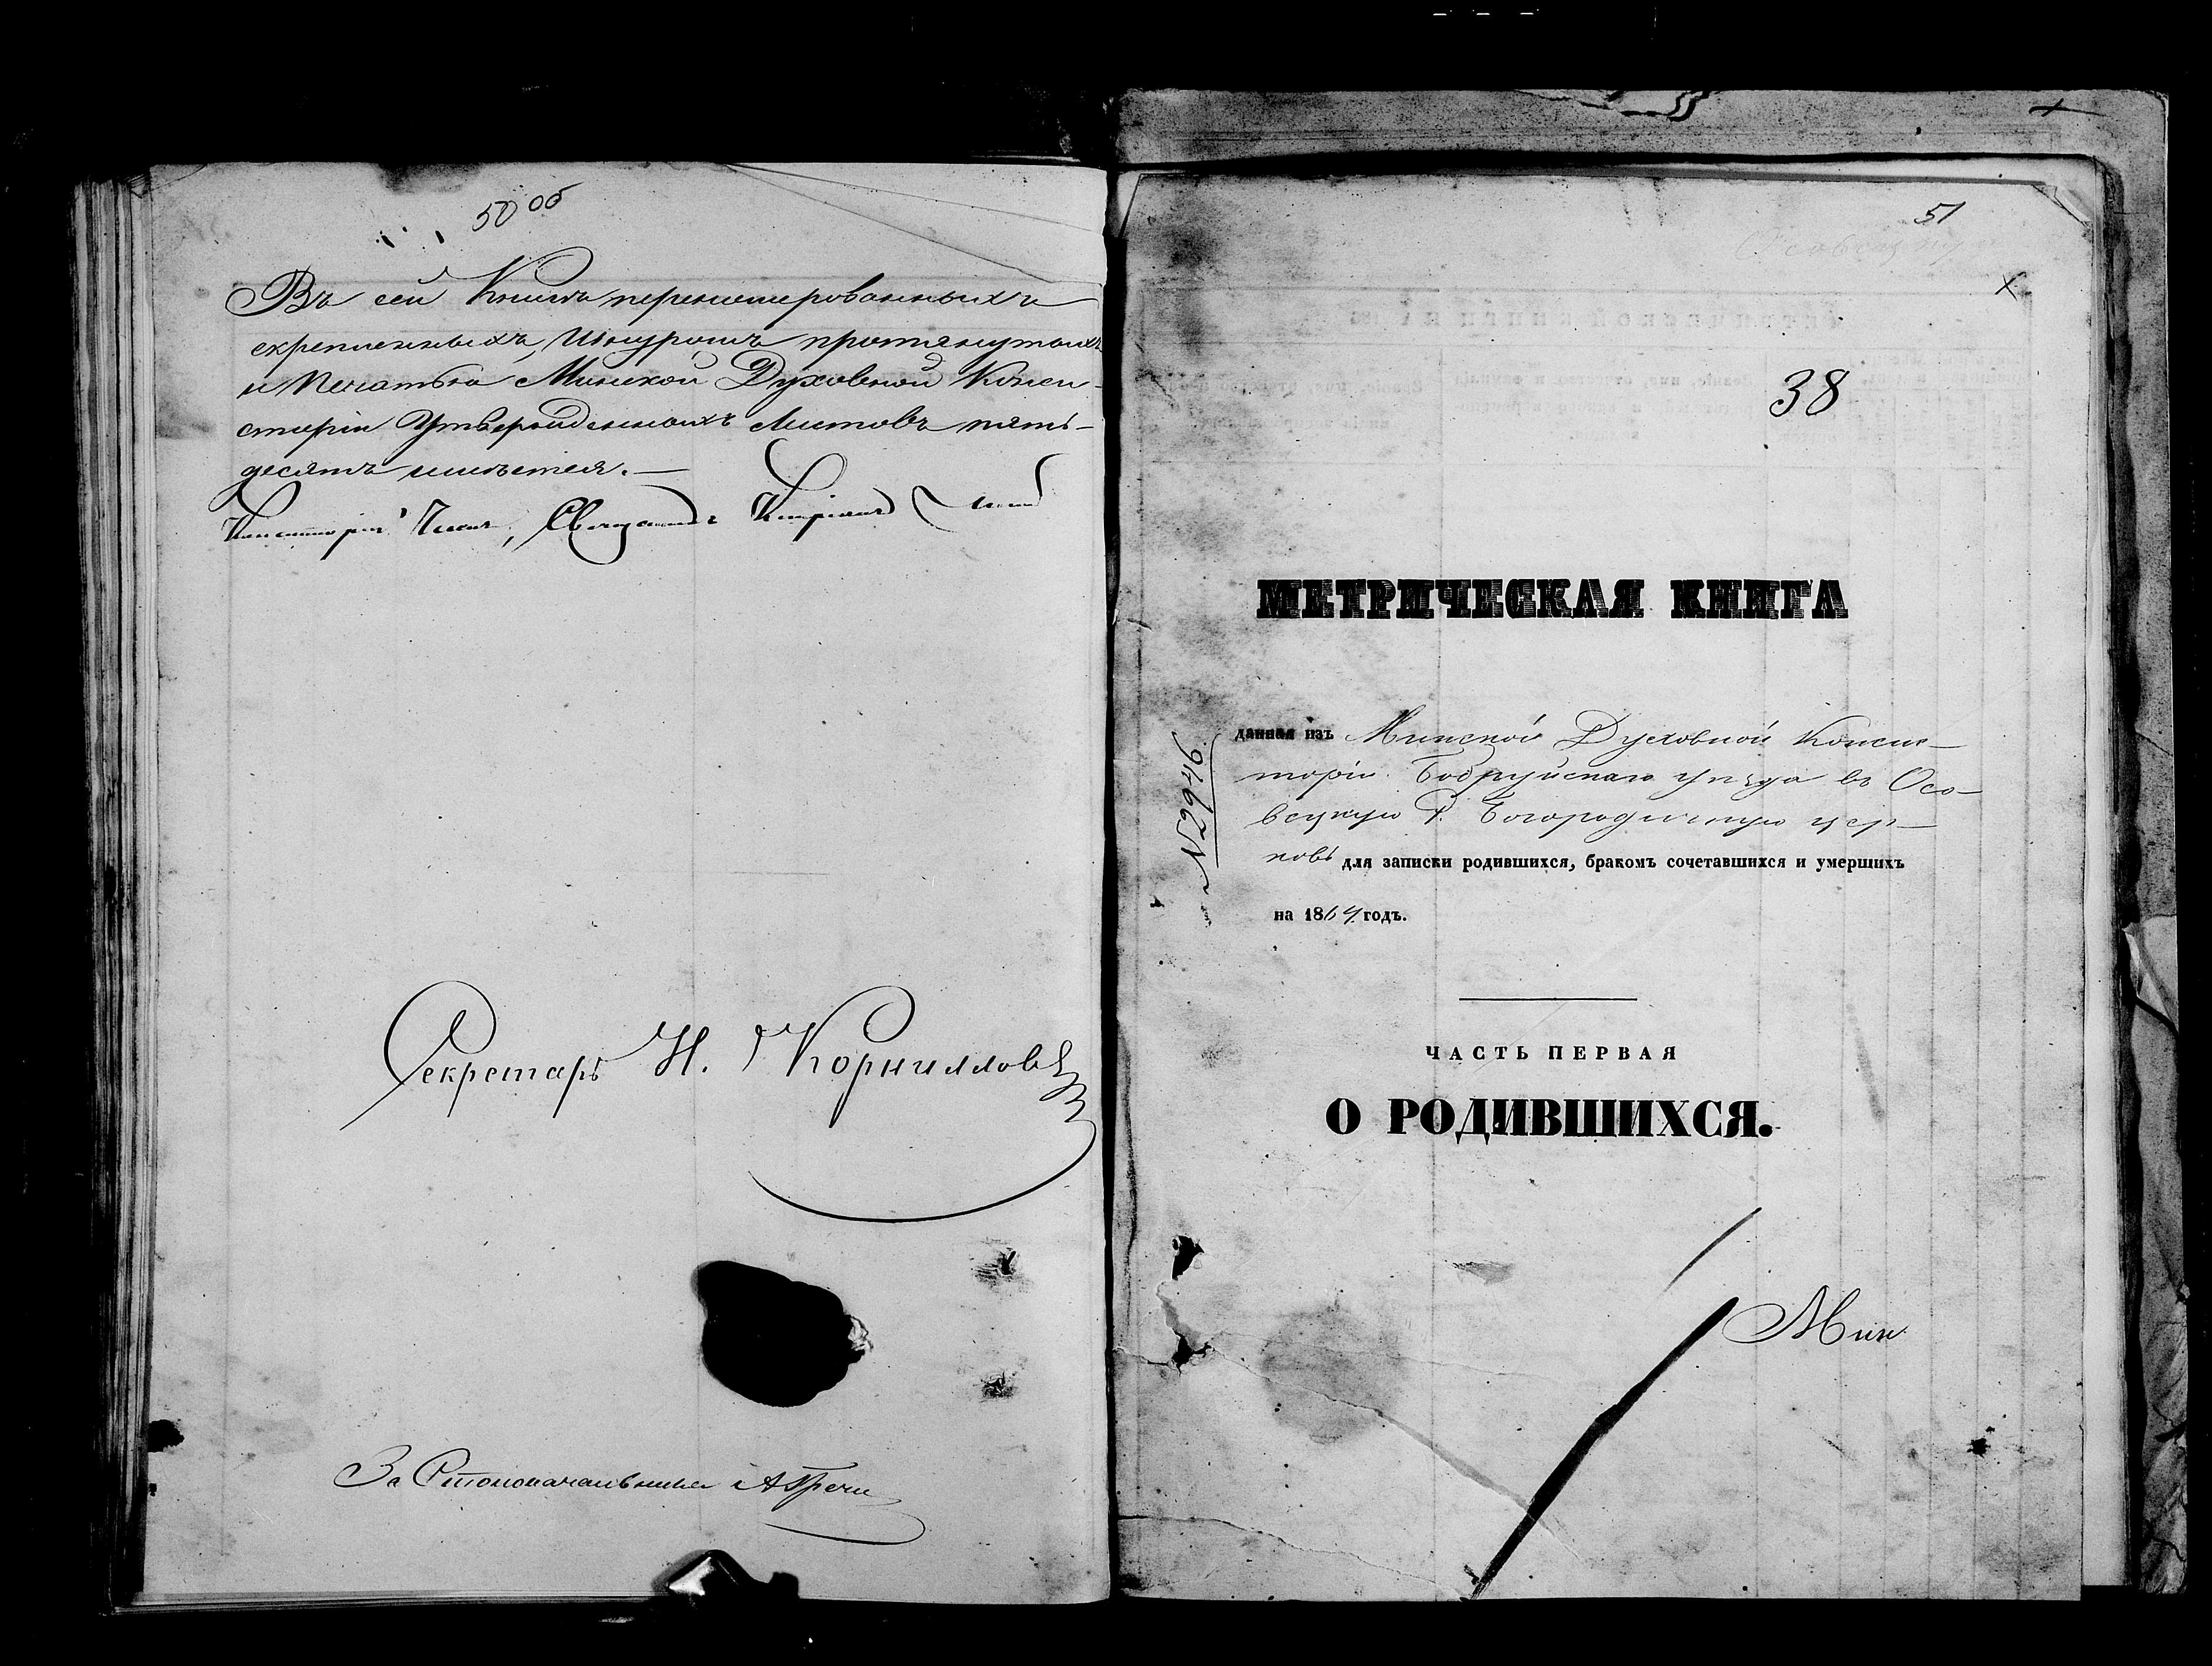 50 об
Въ сей Книгѣ перенумерованныхъ
скрепленныхъ, Шнуромъ протянутыхъ
и Печатью Минской Духовной Конси-
сторіи Утвержденныхъ Листовъ пять-
десятъ имѣется.—
Консисторіи Членъ, Священникъ
Секретарь Н. Корниловъ
За Столоначальника
51
38
МЕТРИЧЕСКАЯ КНИГА
№ 2946.
данная изъ Минской Духовной Конси-
сторіи Бобруйскаго уѣзда въ Осо-
вецкую Р. Богородичную цер-
ковь для записки родившихся, бракомъ сочетавшихся и умершихъ
на 1864 годъ.
ЧАСТЬ ПЕРВАЯ
О РОДИВШИХСЯ.
Мин